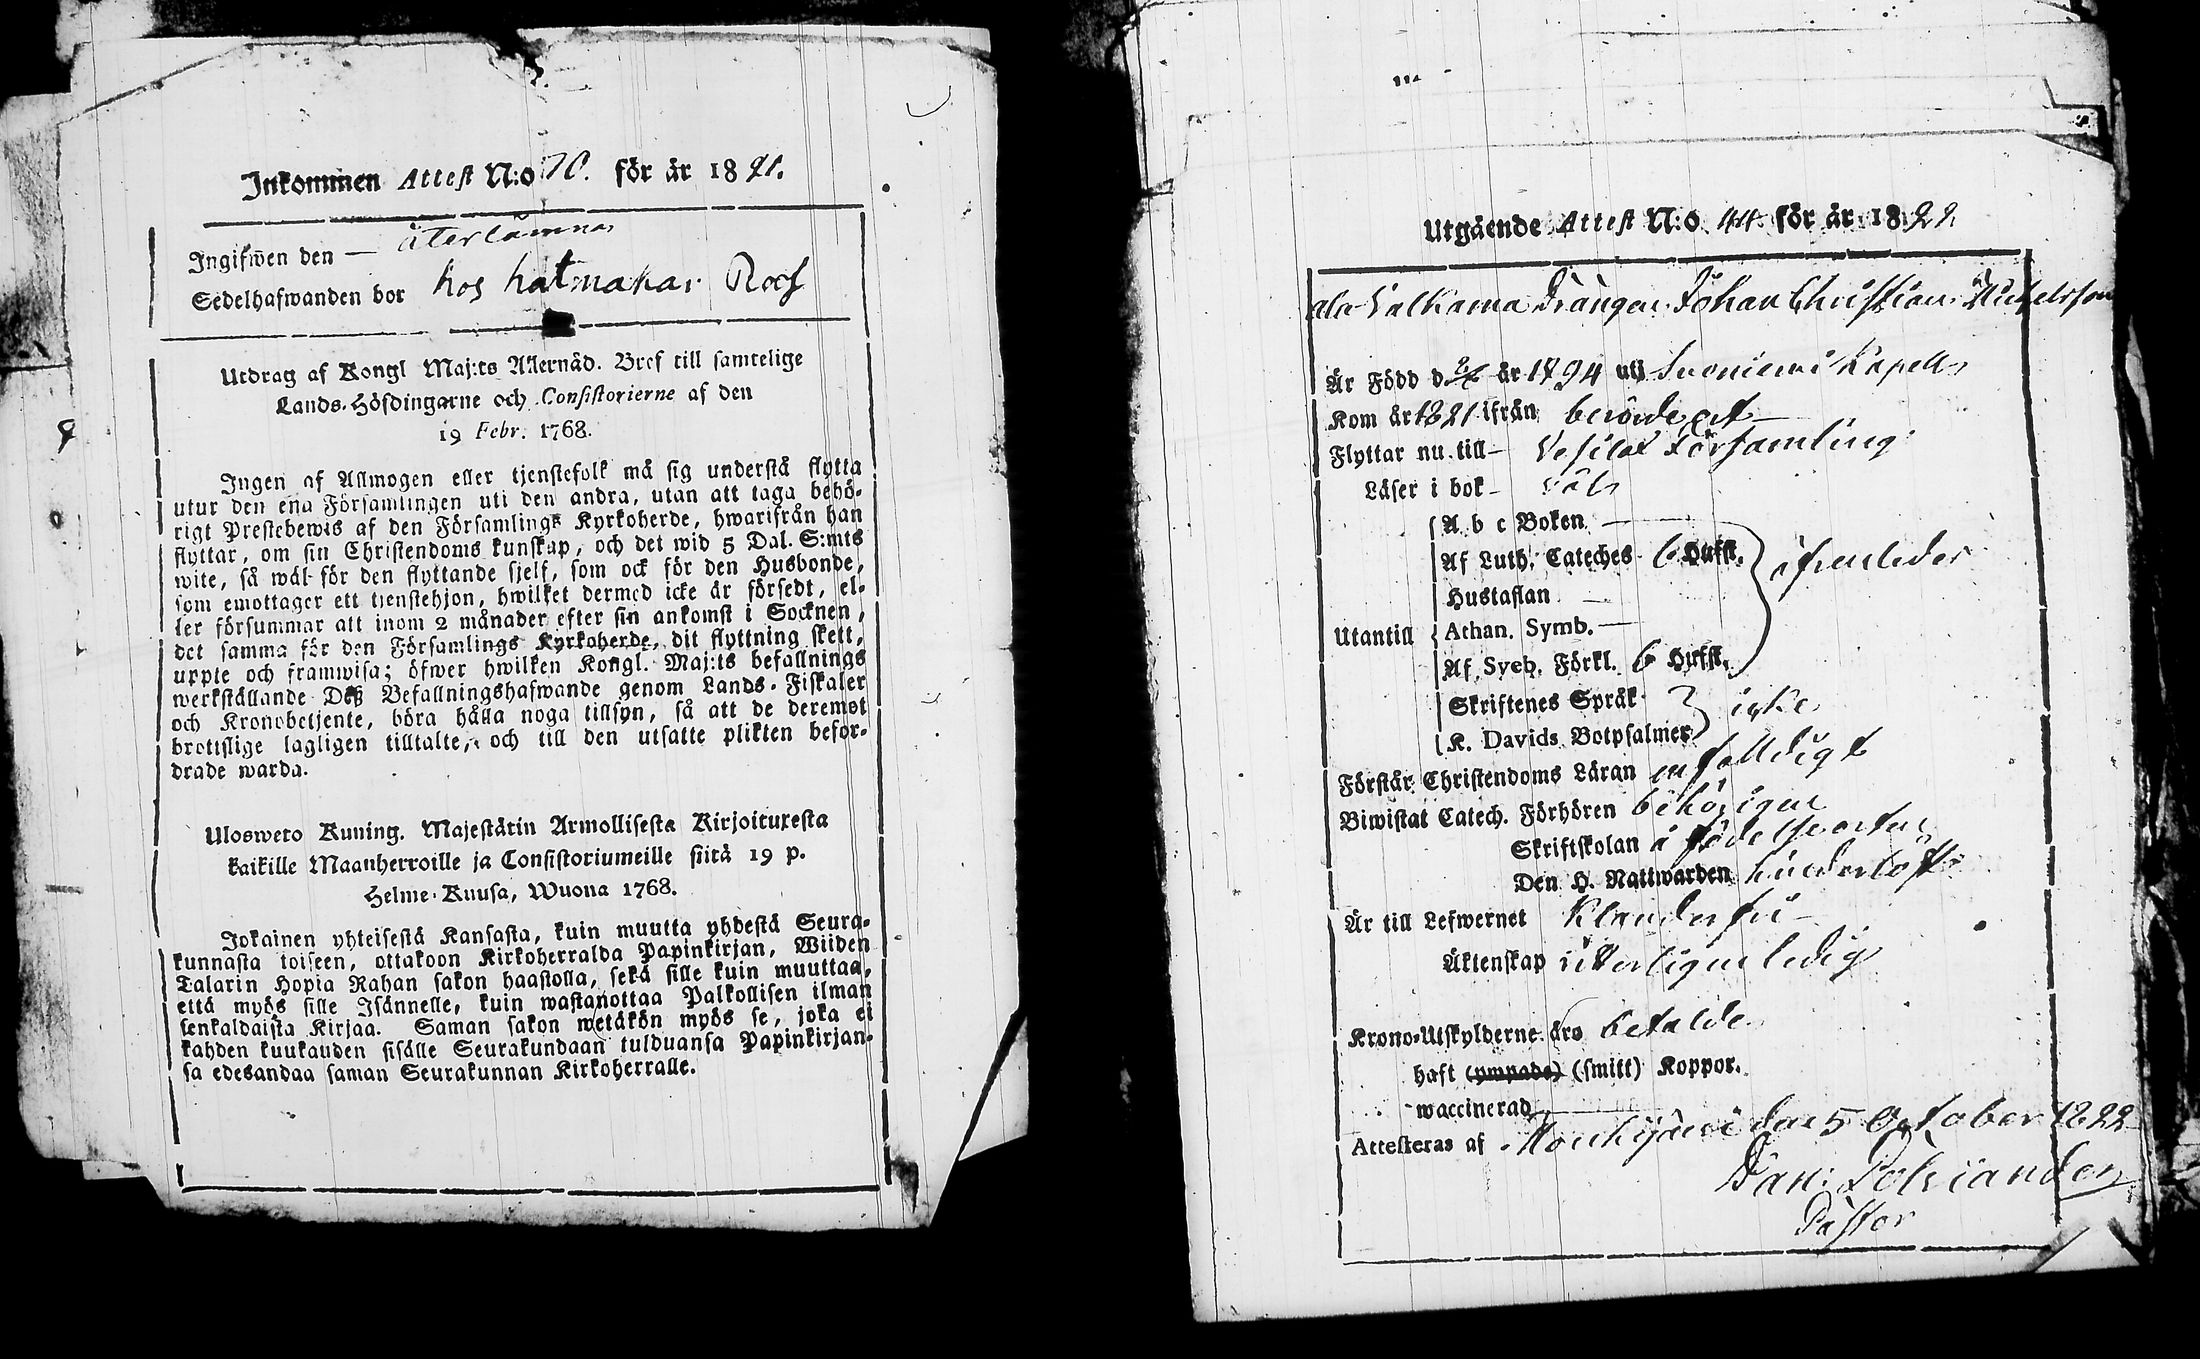 Inkommen Attest N:o 70. för år 1821.
Ingifwen den — återlämnas
Sedelhafwanden bor hos hatmakar Roos
Utdrag af Kongl Maj:ts Allernåd. Bref till samtelige
Lands-Höfdingarne och Consistorierne af den
19 Febr. 1768.
Ingen af Allmogen eller tjenstefolk må sig understå flytta
utur den ena Församlingen uti den andra, utan att taga behö-
rigt Prestebewis af den Församlings Kyrkoherde, hwarifrån han
flyttar, om sin Christendoms kunskap, och det wid 5 Dal. S:mts
wite, så wäl för den flyttande sjelf, som ock för den Husbonde,
som emottager ett tjenstehjon, hwilket dermed icke är försedt, el-
ler försummar att inom 2 månader efter sin ankomst i Socknen,
det samma för den Församlings Kyrkoherde, dit flyttning skett,
uppte och framwisa; öfwer hwilken Kongl. Maj:ts befallnings
werkställande Deß Befallningshafwande genom Lands-Fiskaler
och Kronobetjente, böra hålla noga tillsyn, så att de deremot
brottslige lagligen tilltalte, och till den utsatte plikten befor-
drade warda.
Ulosweto Kuning. Majestätin Armollisesta Kirjoituxesta
kaikille Maanherroille ja Consistoriumeille siitä 19 p.
Helme-Kuusa, Wuona 1768.
Jokainen yhteisestä Kansasta, kuin muutta yhdestä Seura-
kunnasta toiseen, ottakoon Kirkoherralda Papinkirjan, Wiiden
Talarin Hopia Rahan sakon haastolla, sekä sille kuin muuttaa,
että myös sille Isännelle, kuin wastanottaa Palkollisen ilman
senkaldaista Kirjaa. Saman sakon wetäkön myös se, joka ei
kahden kuukauden sisälle Seurakundaan tulduansa Papinkirjan-
sa edesandaa saman Seurakunnan Kirkoherralle.
Utgående Attest N:o 44 för år 1822
Valkama Drängen Johan Christian Michelsson
Är Född d. år 1794 uti Suoniemi Kapell
Kom år 1821 ifrån berörde ort
Flyttar nu till Vesilax Församling
Läser i bok
A b c Boken —
Af Luth. Cateches 6 Hufst.
Hustaflan —
Utantill Athan. Symb. —
Af Sveb. Förkl. 6 Hufst.
Skriftenes Språk
icke
K. Davids Botpsalmer
Förstår Christendoms Läran enfalldigt
Biwistat Catech. Förhören behörigen
Skriftskolan å födelseorten
Den H. Nattwarden hinderlöst
Är till Lefwernet klanderfri
Äktenskap witterligen ledig
Krono-Utskylderne äro betalde
haft (ympade) (smitt) Koppor.
waccinerad —
Attesteras af Mouhijärvi den 5 October 1822
Dan: Polviander
Pastor